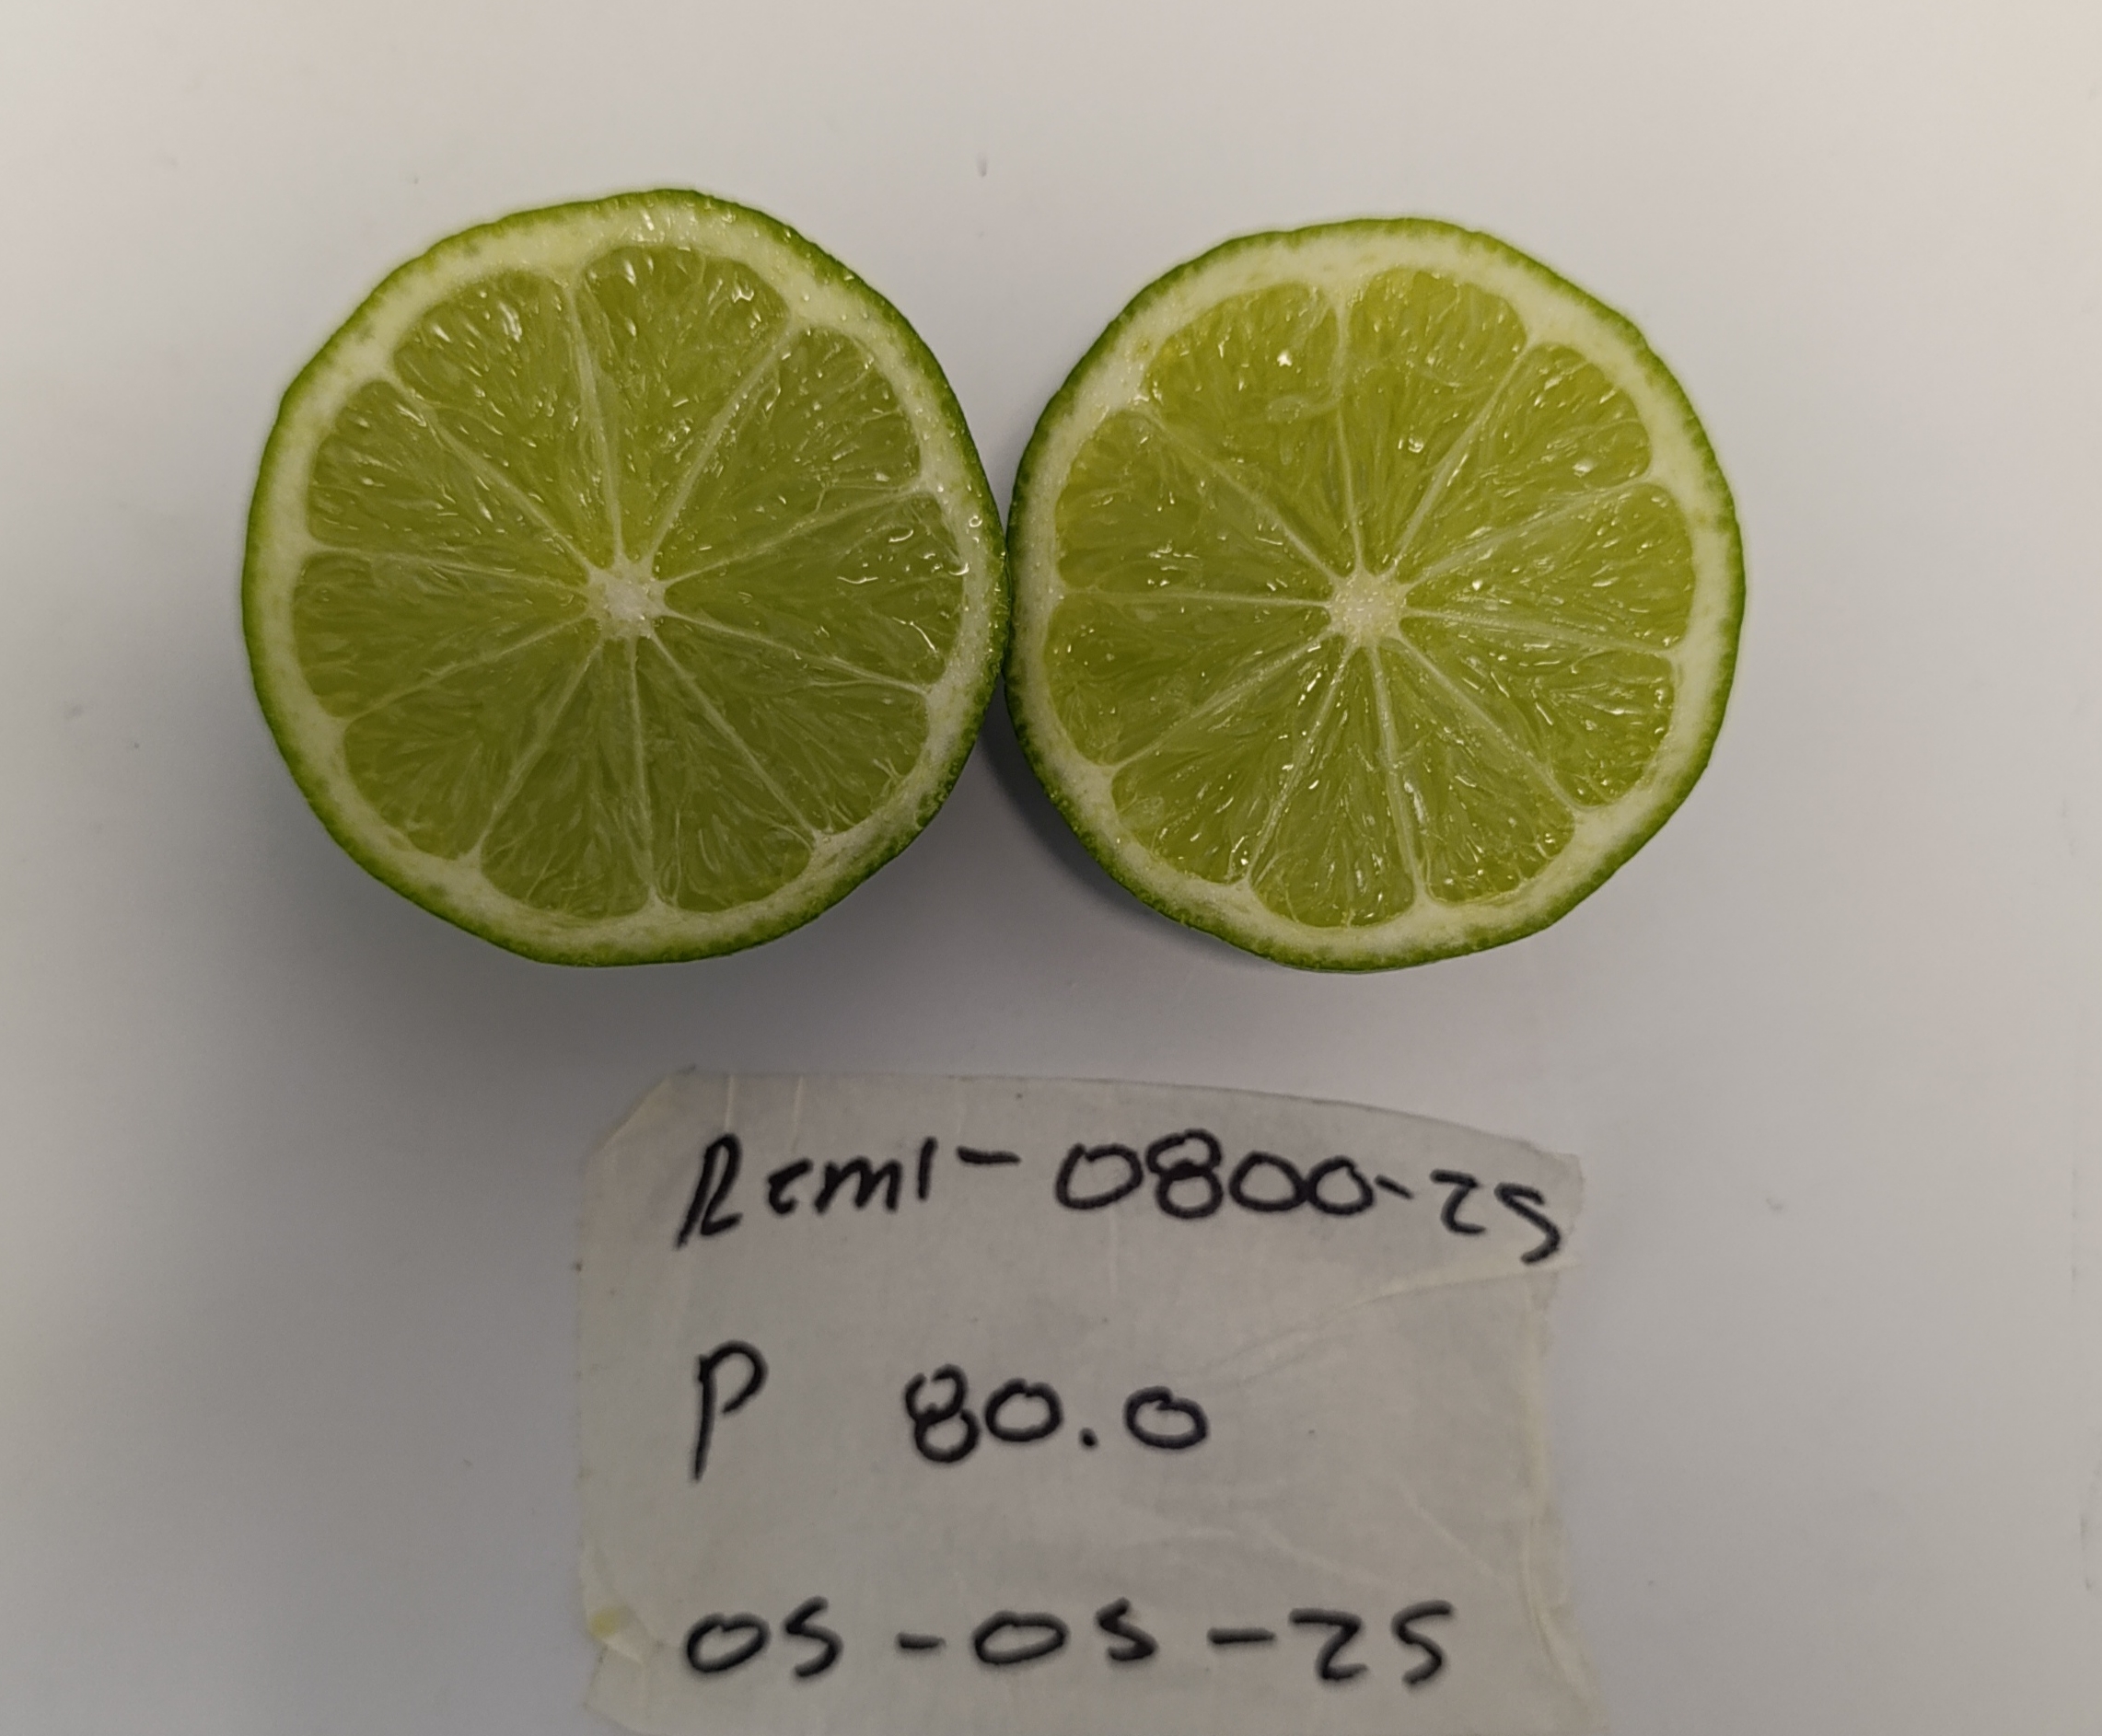 Reml-0800-25
P 80.0
05-05-25